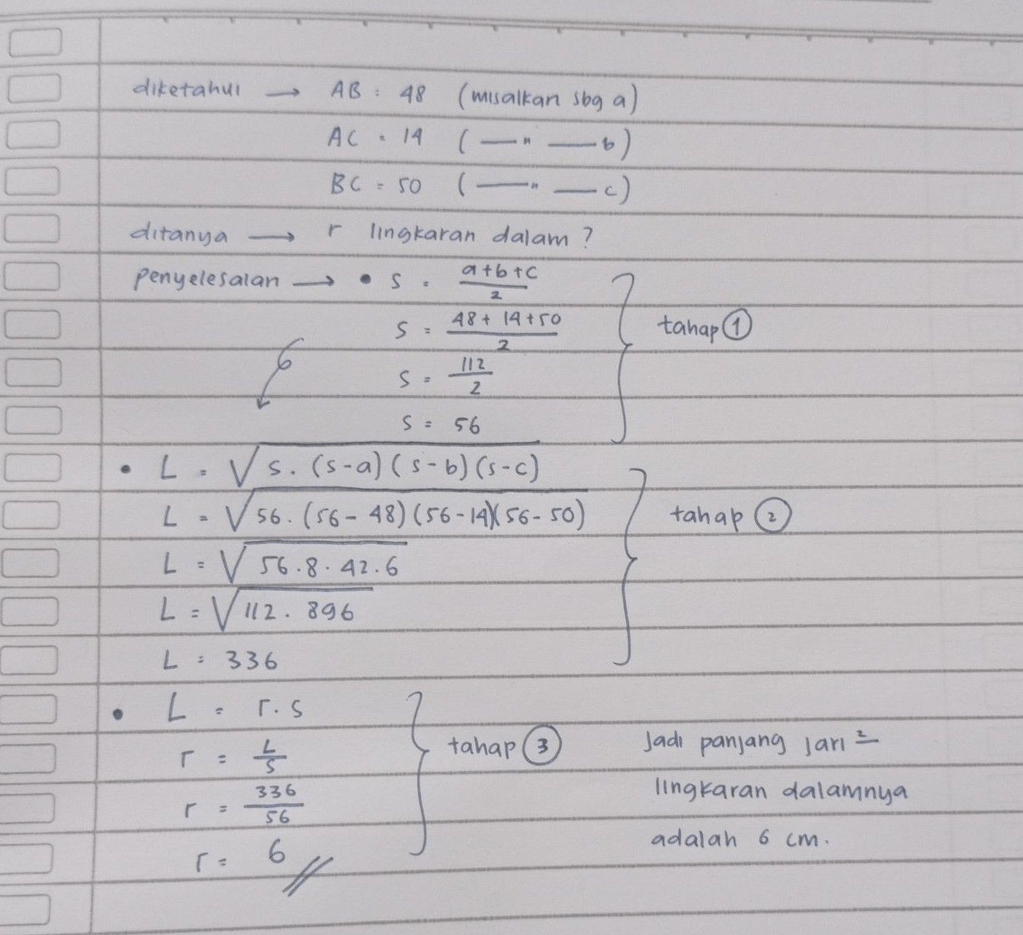 diketahui → AB = 48 (misalkan sbg a)
AC = 14 ( —"— b)
BC = 50 ( —"— c)
ditanya → r lingkaran dalam ?
penyelesaian → • s = a+b+c / 2
s = 48 + 14 + 50 / 2
tahap ①
s = 112 / 2
s = 56
• L = √s. (s-a) (s-b) (s-c)
L = √56. (56 - 48) (56 - 14)(56 - 50)
tahap ②
L = √56.8.42.6
L = √112.896
L = 336
• L = r.s
r = L / s
tahap ③
r = 336 / 56
r = 6 //
Jadi panjang jari ²
lingkaran dalamnya
adalah 6 cm.